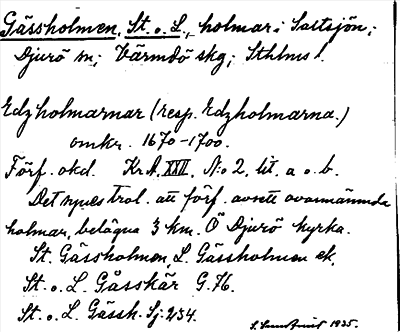 Gässholmen, St. o. L., holmar i Saltsjön;
Djurö sn; Värmdö skg; Sthlms l.
Edzholmarnar (resp. Edzholmarna.)
omkr. 1670-1700.
Förf. okd. Kr A. XXII. N:o 2, lit. a o. b.
Det synes trol. att förf. avsett ovannämnda
holmar, belägna 3 km. Ö Djurö kyrka.
St. Gässholmen, L. Gässholmen ek.
St. o. L. Gässkär G. 76.
St. o. L. Gässh. Sj: 234.
1935.